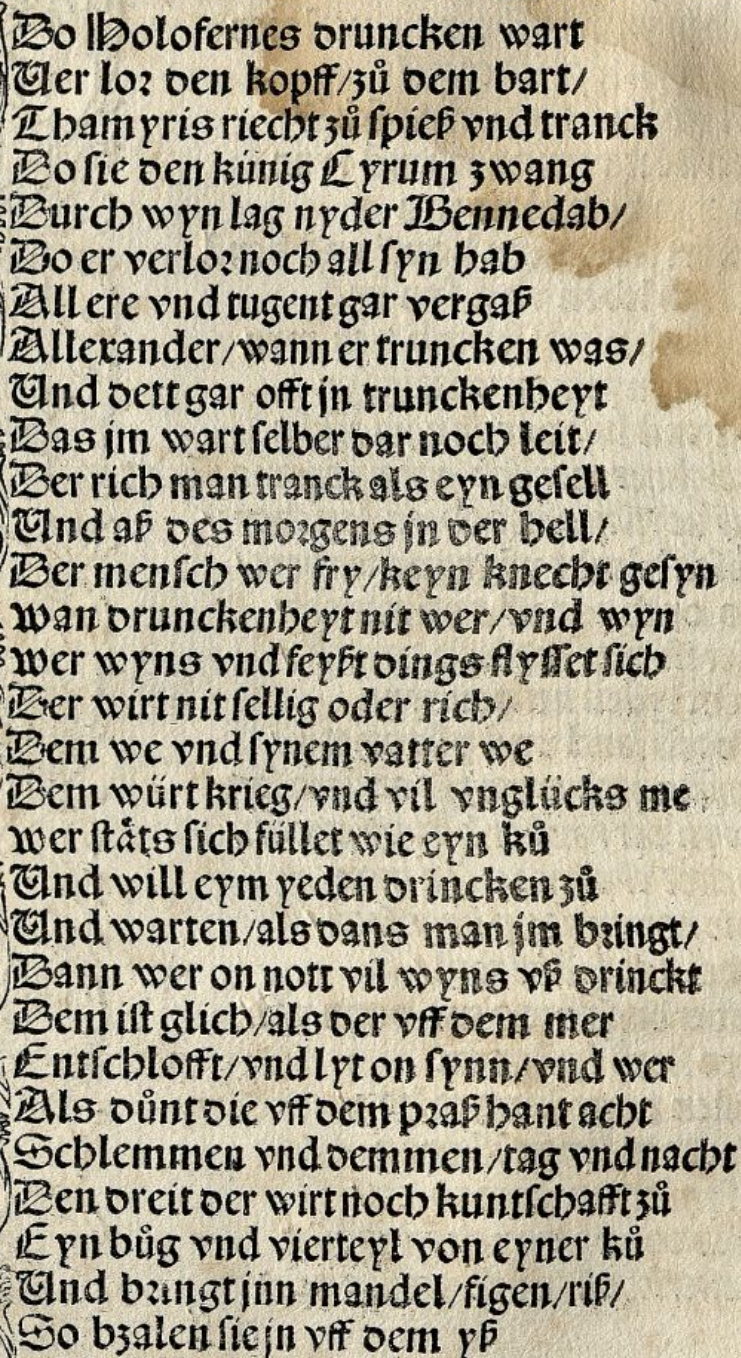 Do Holofernes druncken wart
Uer lor den kopff/zů dem bart/
Thamyris riecht zů spieß vnd tranck
Do sie den künig Cyrum zwang
Durch wyn lag nyder Bennedab/
Do er verlor noch all syn hab
All ere vnd tugent gar vergaß
Allexander/wann er truncken was/
Und dett gar offt jn trunckenheyt
Das jm wart selber dar noch leit/
Der rich man tranck als eyn gesell
Und aß des morgens jn der hell/
Der mensch wer fry/keyn knecht gesyn
wan drunckenheyt nit wer/vnd wyn
wer wyns vnd feyßt dings flysset sich
Der wirt nit sellig oder rich/
Dem we vnd synem vatter we
Dem würt krieg/vnd vil vnglücks me
wer stäts sich füllet wie eyn ků
Und will eym yeden drincken zů
Und warten/als das man jm bringt/
Dann wer on nott vil wyns vß drinckt
Dem ist glich/als der vff dem mer
Entschlofft/vnd lyt on synn/vnd wer
Als důnt die vff dem praß hant acht
Schlemmen vnd demmen/tag vnd nacht
Den dreit der wirt noch kuntschafft zů
Eyn bůg vnd vierteyl von eyner ků
Und bringt jnn mandel/figen/riß/
So bzalen sie jn vff dem yß